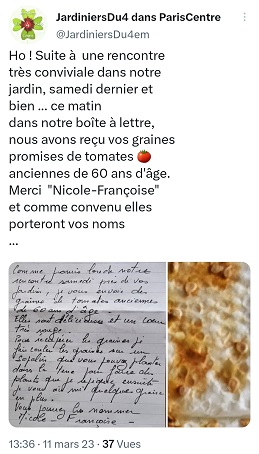 JardiniersDu4 dans ParisCentre
@JardiniersDu4em
Ho ! Suite à une rencontre
très conviviale dans notre
jardin, samedi dernier et
bien ... ce matin
dans notre boîte à lettre,
nous avons reçu vos graines
promises de tomates 🍅
anciennes de 60 ans d'âge.
Merci "Nicole-Françoise"
et comme convenu elles
porteront vos noms
...
Comme promis lors de notre
rencontre samedi près de vos
jardins, je vous envoie des
graines de tomates anciennes
de 60 ans d'âge -
Elles sont délicieuses et un cœur
très rouge.
Pour récupérer les graines j'ai
fait couler les graines sur un
Sopalin que vous pouvez planter
dans la terre pour faire des
plants que je repique ensuite
je vous ai mis quelques graines
en plus.
Vous pouvez les nommer
Nicole - Françoise -
13:36 · 11 mars 23 · 37 Vues